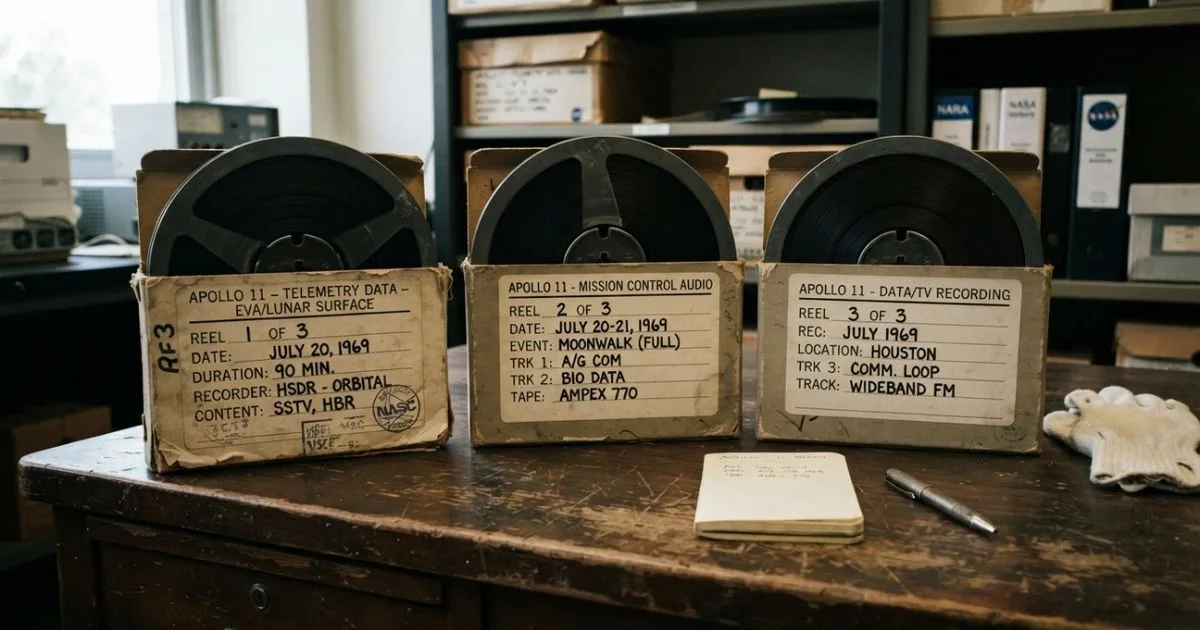 NARA
NASA
NASA
APOLLO 11 – TELEMETRY DATA –
EVA/LUNAR SURFACE
REEL 1 OF 3
DATE: JULY 20, 1969
DURATION: 90 MIN.
RECORDER: HSDR - ORBITAL
CONTENT: SSTV, HBR
RF3
NASC
APOLLO 11 - MISSION CONTROL AUDIO
REEL 2 OF 3
DATE: JULY 20-21, 1969
EVENT: MOONWALK (FULL)
TRK 1: A/G COM
TRK 2: BIO DATA
TAPE: AMPEX 770
APOLLO 11 - DATA/TV RECORDING
REEL 3 OF 3
REC: JULY 1969
LOCATION: HOUSTON
TRK 3: COMM. LOOP
TRACK: WIDEBAND FM